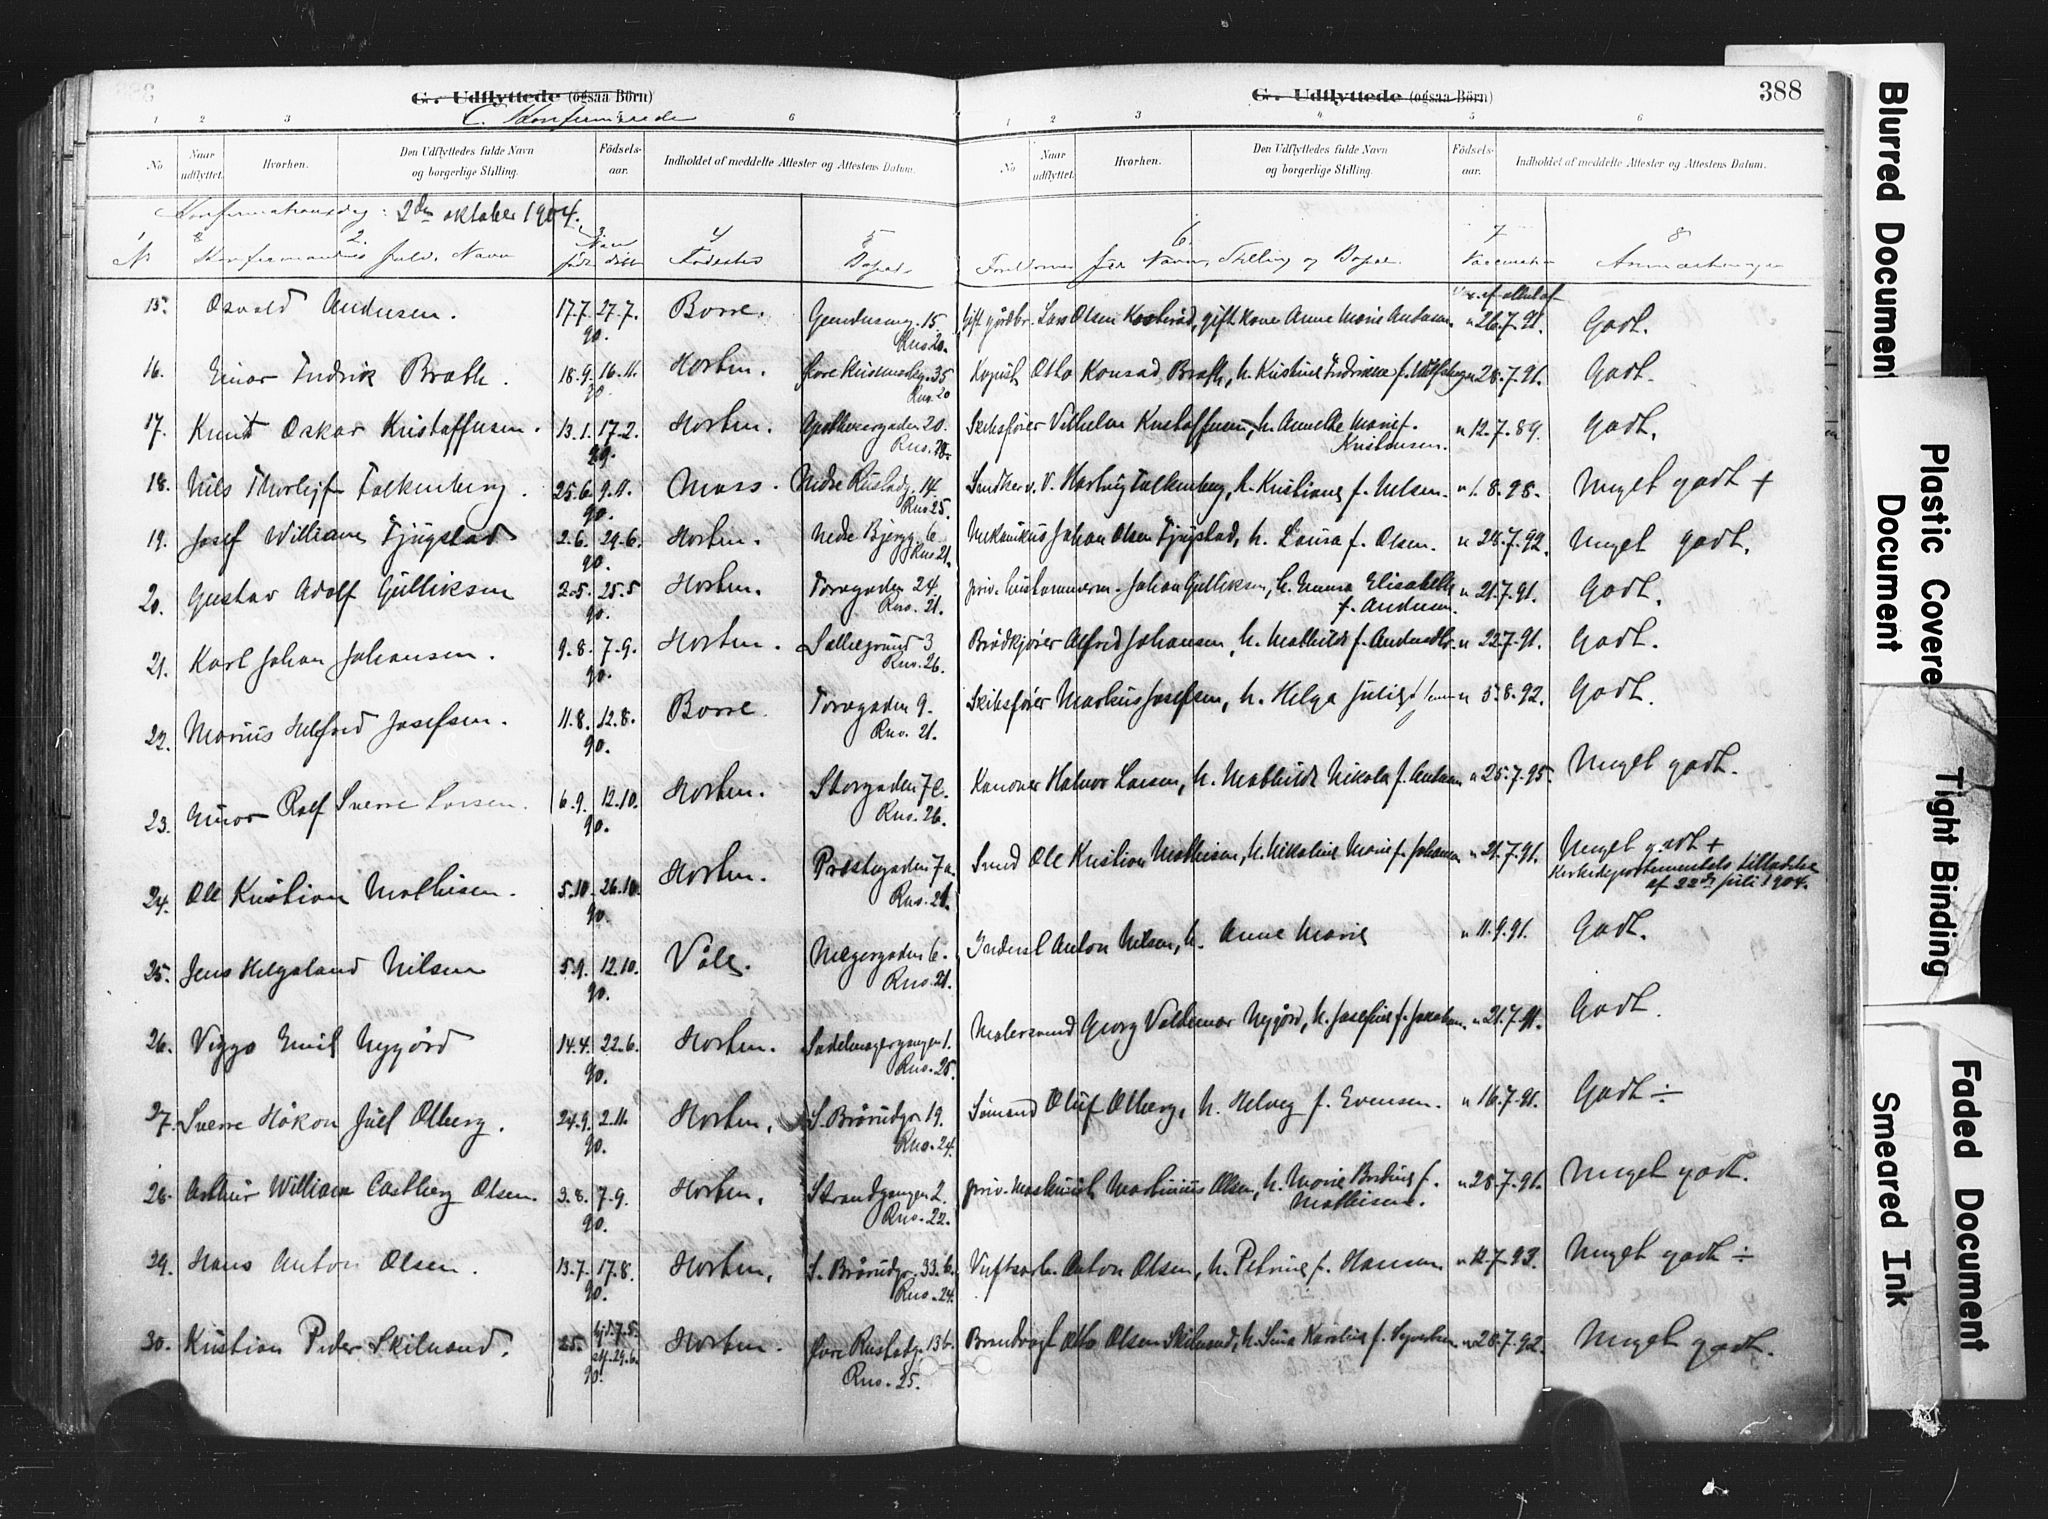 G. Udflyttede (ogsaa Börn)
C. Konfirmerede
1 2 3 6
No. Naar udflyttet. Hvorhen. Den Udflyttedes fulde Navn og borgerlige Stilling. Födsels-aar. Indholdet af meddelte Attester og Attestens Datum.
G. Udflyttede (ogsaa Börn) 388
1 2 3 4 5 6
No Naar udflyttet. Hvorhen. Den Udflyttedes fulde Navn og borgerlige Stilling. Födsels-aar. Indholdet af meddelte Attester og Attestens Datum.
Konfirmationsdag: 2den oktober 1904.
1 2. 3. 4 5 6. 7 8
Nr Konfirmandens fulde Navn Naar født døbt Fødested Bopæl Forældrenes fulde Navne, Stilling og Bopæl. Vaccination Anmærkninger
15. Osvald Andersen. 17.7. 27.7. 90. Borre. 15. Rns. 20. Gift gårdbr. Lars Olsen gift Kone Anne Marie Andersen " 26.7.91. Godt.
16. Einar Fredrik Brath. 18.9. 16.11. 90. Horten. 35 Rns. 20 Kopist Otto Konrad Brath, h. Kristine Fredrikke f. " 28.7.91. Godt.
17. Knut Oskar Kristoffersen. 13.1. 17.2. 89. Horten. Apothekergaden 20. Rns. 20. Skibsfører Vilhelm Kristoffersen, h. Annethe Marie f. Kristensen. " 12.7.89. Godt.
18. Nils Thorleif Falkenberg. 25.6. 9.11. 90. Moss. Nedre Rustadg. 14. Rns. 25. Hartvig Falkenberg, h. Kristiane f. Nelsen. " 1.8.98. Meget godt +
19. Josef William Fjugstad 2.6. 29.6. 90. Horten. Nedre Bjergg. 6. Rns. 21. Mekanikus Johan Olsen Fjugstad, h. Laura f. Olsen. " 28.7.92. Meget godt.
20. Gustav Adolf Gulliksen 2.5. 25.5 90. Horten. Torvegaden 24. Rns. 21. priv. tustømmerm. Johan Gulliksen, h. Emma Elisabeth f. Andersen. " 21.7.91. Godt.
21. Karl Johan Johansen. 9.8. 7.9. 90. Horten. Sølliegrund 3 Rns. 26. Brødkjører Alfred Johansen, h. Mathilde f. " 22.7.91. Godt.
22. Marius Helfred Josefsen. 11.8. 12.8. 90. Borre. Torvegaden 9. Rns. 21. Skibsfører Markus Josefsen, h. Helga Julie " 5.8.92. Godt.
23. Einar Rolf Sverre Larsen. 6.9. 12.10. 90. Horten. Storgaden 7c. Rns. 26. Kanoner Halvor Larsen, h. Mathilde Nikola f. " 25.7.95. Meget godt.
24. Ole Kristian Mathisen. 5.10. 26.10. 90. Horten. Præstegaden 7a. Rns. 21. Smed Ole Kristian Mathisen, h. Nikoline Marie f. Johansen " 21.7.91. Meget godt +
Kirkedepartementets tilladelse af 22de juli 1904.
25. Jens Helgeland Nilsen 5.9. 12.10. 90. Våle. Meyergaden 6. Rns. 21. Inderst Anton Nilsen, h. Anne Marie " 11.9.91. Godt.
26. Viggo Emil Nygård 14.4. 22.6. 90. Horten. Sadelmagergangen 1. Rns. 25. Malersvend Georg Valdemar Nygård, h. Josefine f. Jakobsen. " 21.7.91. Godt.
27. Sverre Håkon Juel Olberg. 24.9. 2.11. 90. Horten. S. Brårudgr. 19. Rns. 24. Sømand Oluf Olberg, h. Helvig f. Evensen. " 16.7.91. Godt ÷
28. Arthur William Castberg Olsen. 3.8. 7.9. 90. Horten. Strandgangen 2. Rns. 22. priv. Maskinist Martinius Olsen, h. Marie Bertine f. Mathisen. " 28.7.91. Meget godt.
29. Hans Anton Olsen. 13.7. 17.8. 90. Horten. S. Brårudgr. 33.b. Rns. 24. Verftsarb. Anton Olsen, h. Petrine f. Hansen " 12.7.93. Meget godt ÷
30. Kristian Peder Skilsund. 25. hjd. 7.5. stf. 29.6. 90. Horten. Øvre Rustadg. 13b. Rns. 25. Brandvagt Otto Olsen Skilsund, h. Lina Karoline f. Syvertsen " 28.7.92. Meget godt.
Blurred Document
Plastic Covere
Document
Tight Binding
Faded Document
Smeared Ink